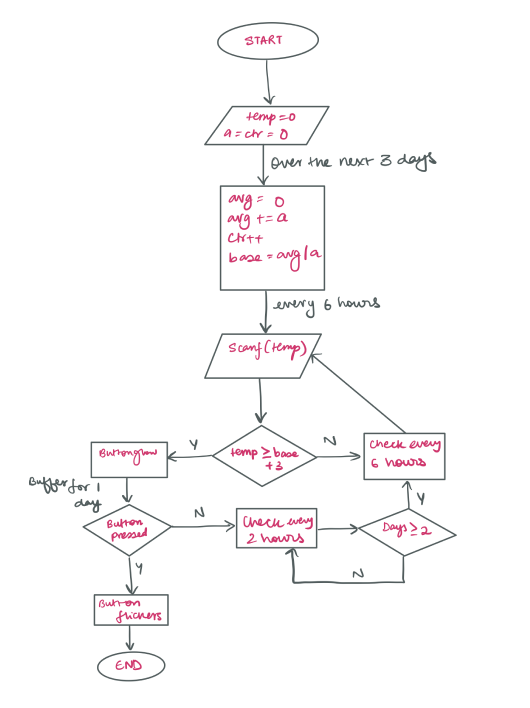 START
temp=0
a = ctr = 0
Over the next 3 days
avg = 0
avg += a
ctr++
base = avg/a
every 6 hours
Scanf(temp)
Y
temp ≥ base
+3
N
Check every
6 hours
Buttonglow
Buffer for 1
day
Button
pressed
N
Check every
2 hours
Days ≥ 2
Y
N
Y
Button
flickers
END